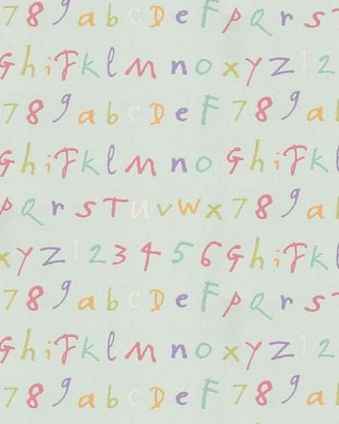 7 8 9 a b c D e F p Q r s T
G h i J k l m n o x y Z 1 2
7 8 9 a b c D e F 7 8 9 a b
G h i J k l m n o G h i J k l
p Q r s T u v w x 7 8 9 a b
x y Z 1 2 3 4 5 6 G h i J k l
7 8 9 a b c D e F p Q r s T
G h i J k l m n o x y Z 1 2
7 8 9 a b c D e F 7 8 9 a b